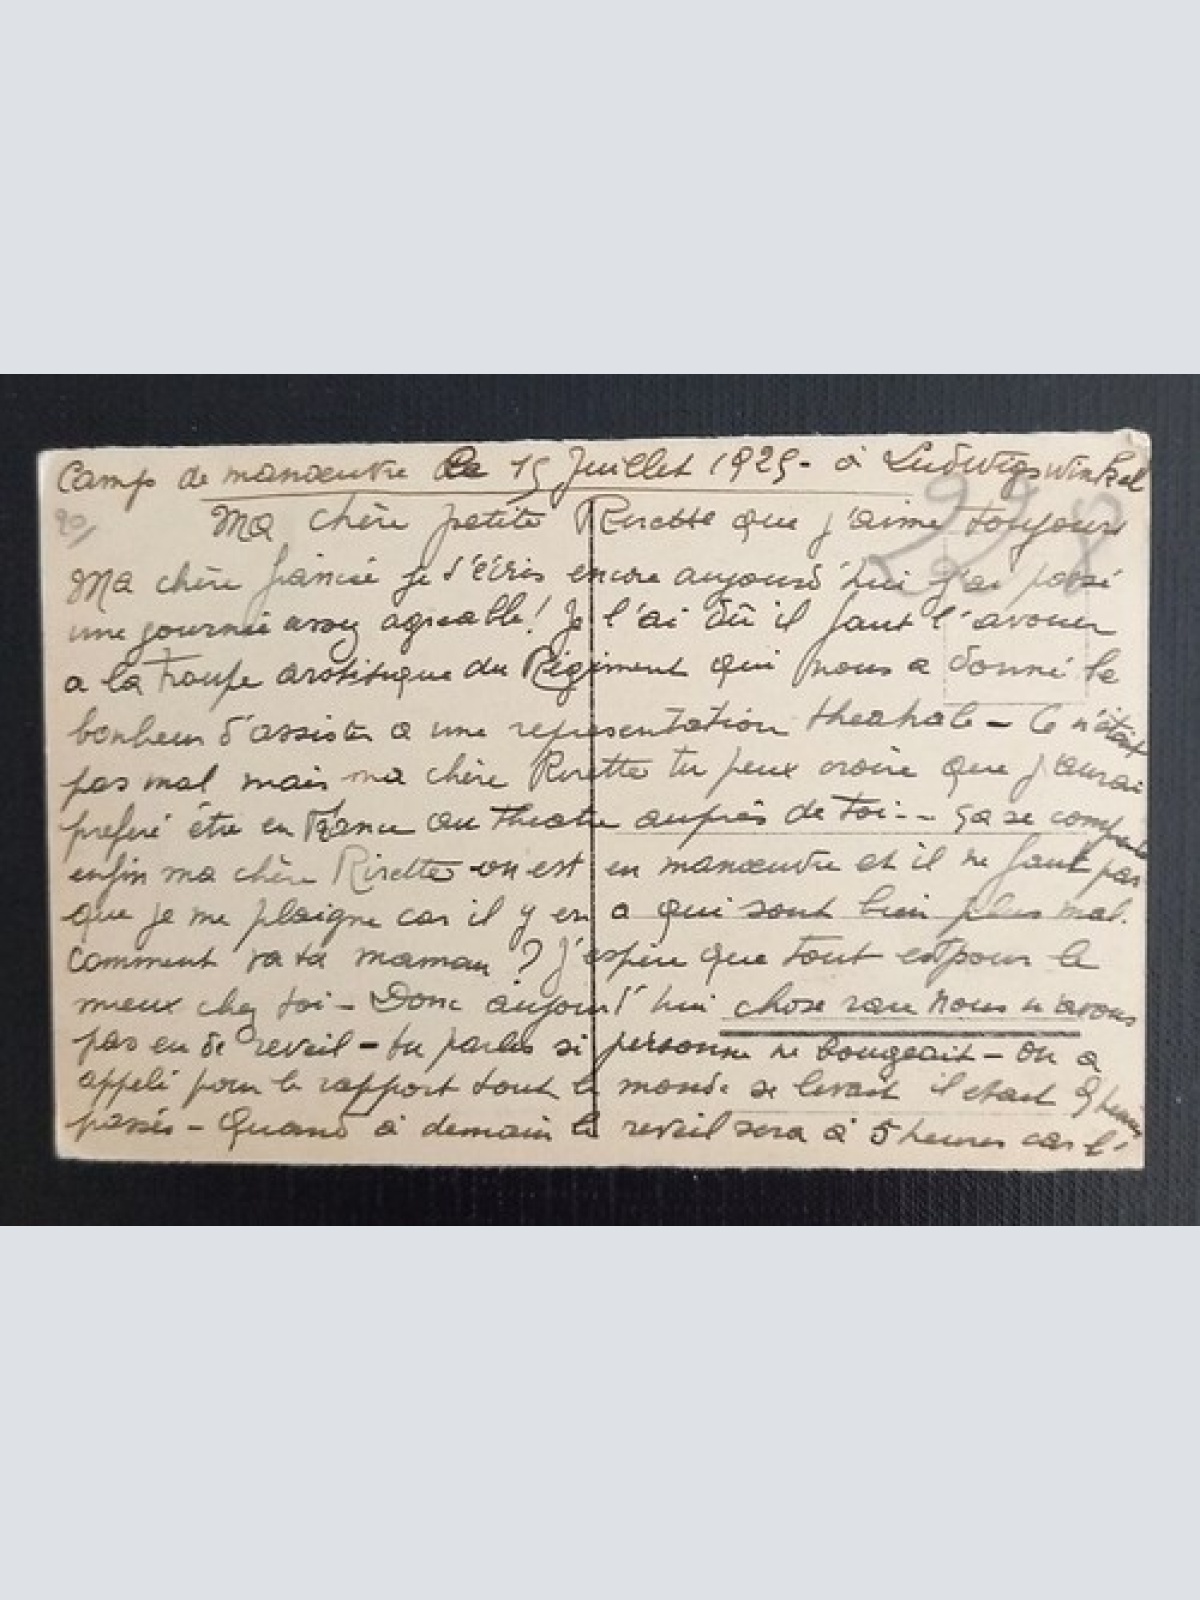 Camp de manœuvre le 15 Juillet 1925 - à Ludwigswinkel
20/
Ma chère petite Rirette que j'aime toujours
Ma chère fiancié je t'écris encore aujourd'hui j'ai passé
une journée assez agréable! Je l'ai dû il faut l'avouer
a la Troupe artistique du Régiment qui nous a donné le
bonheur d'assister a une representation theatrale - Ce n'était
pas mal mais ma chère Rirette tu peux croire que j'aurai
preferé être en France au Theatre auprès de toi -- ça se comprend
enfin ma chère Rirette on est en manœuvre et il ne faut pas
que je me plaigne car il y en a qui sont bien plus mal.
Comment va ta maman ? J'espère que tout est pour le
mieux chez toi - Donc aujourd'hui chose rare nous n'avons
pas eu de reveil - tu parles si personne ne bougeait - On a
appelé pour le rapport tout le monde se levait il etait 9 heures
passés - Quand à demain le reveil sera à 5 heures car l'